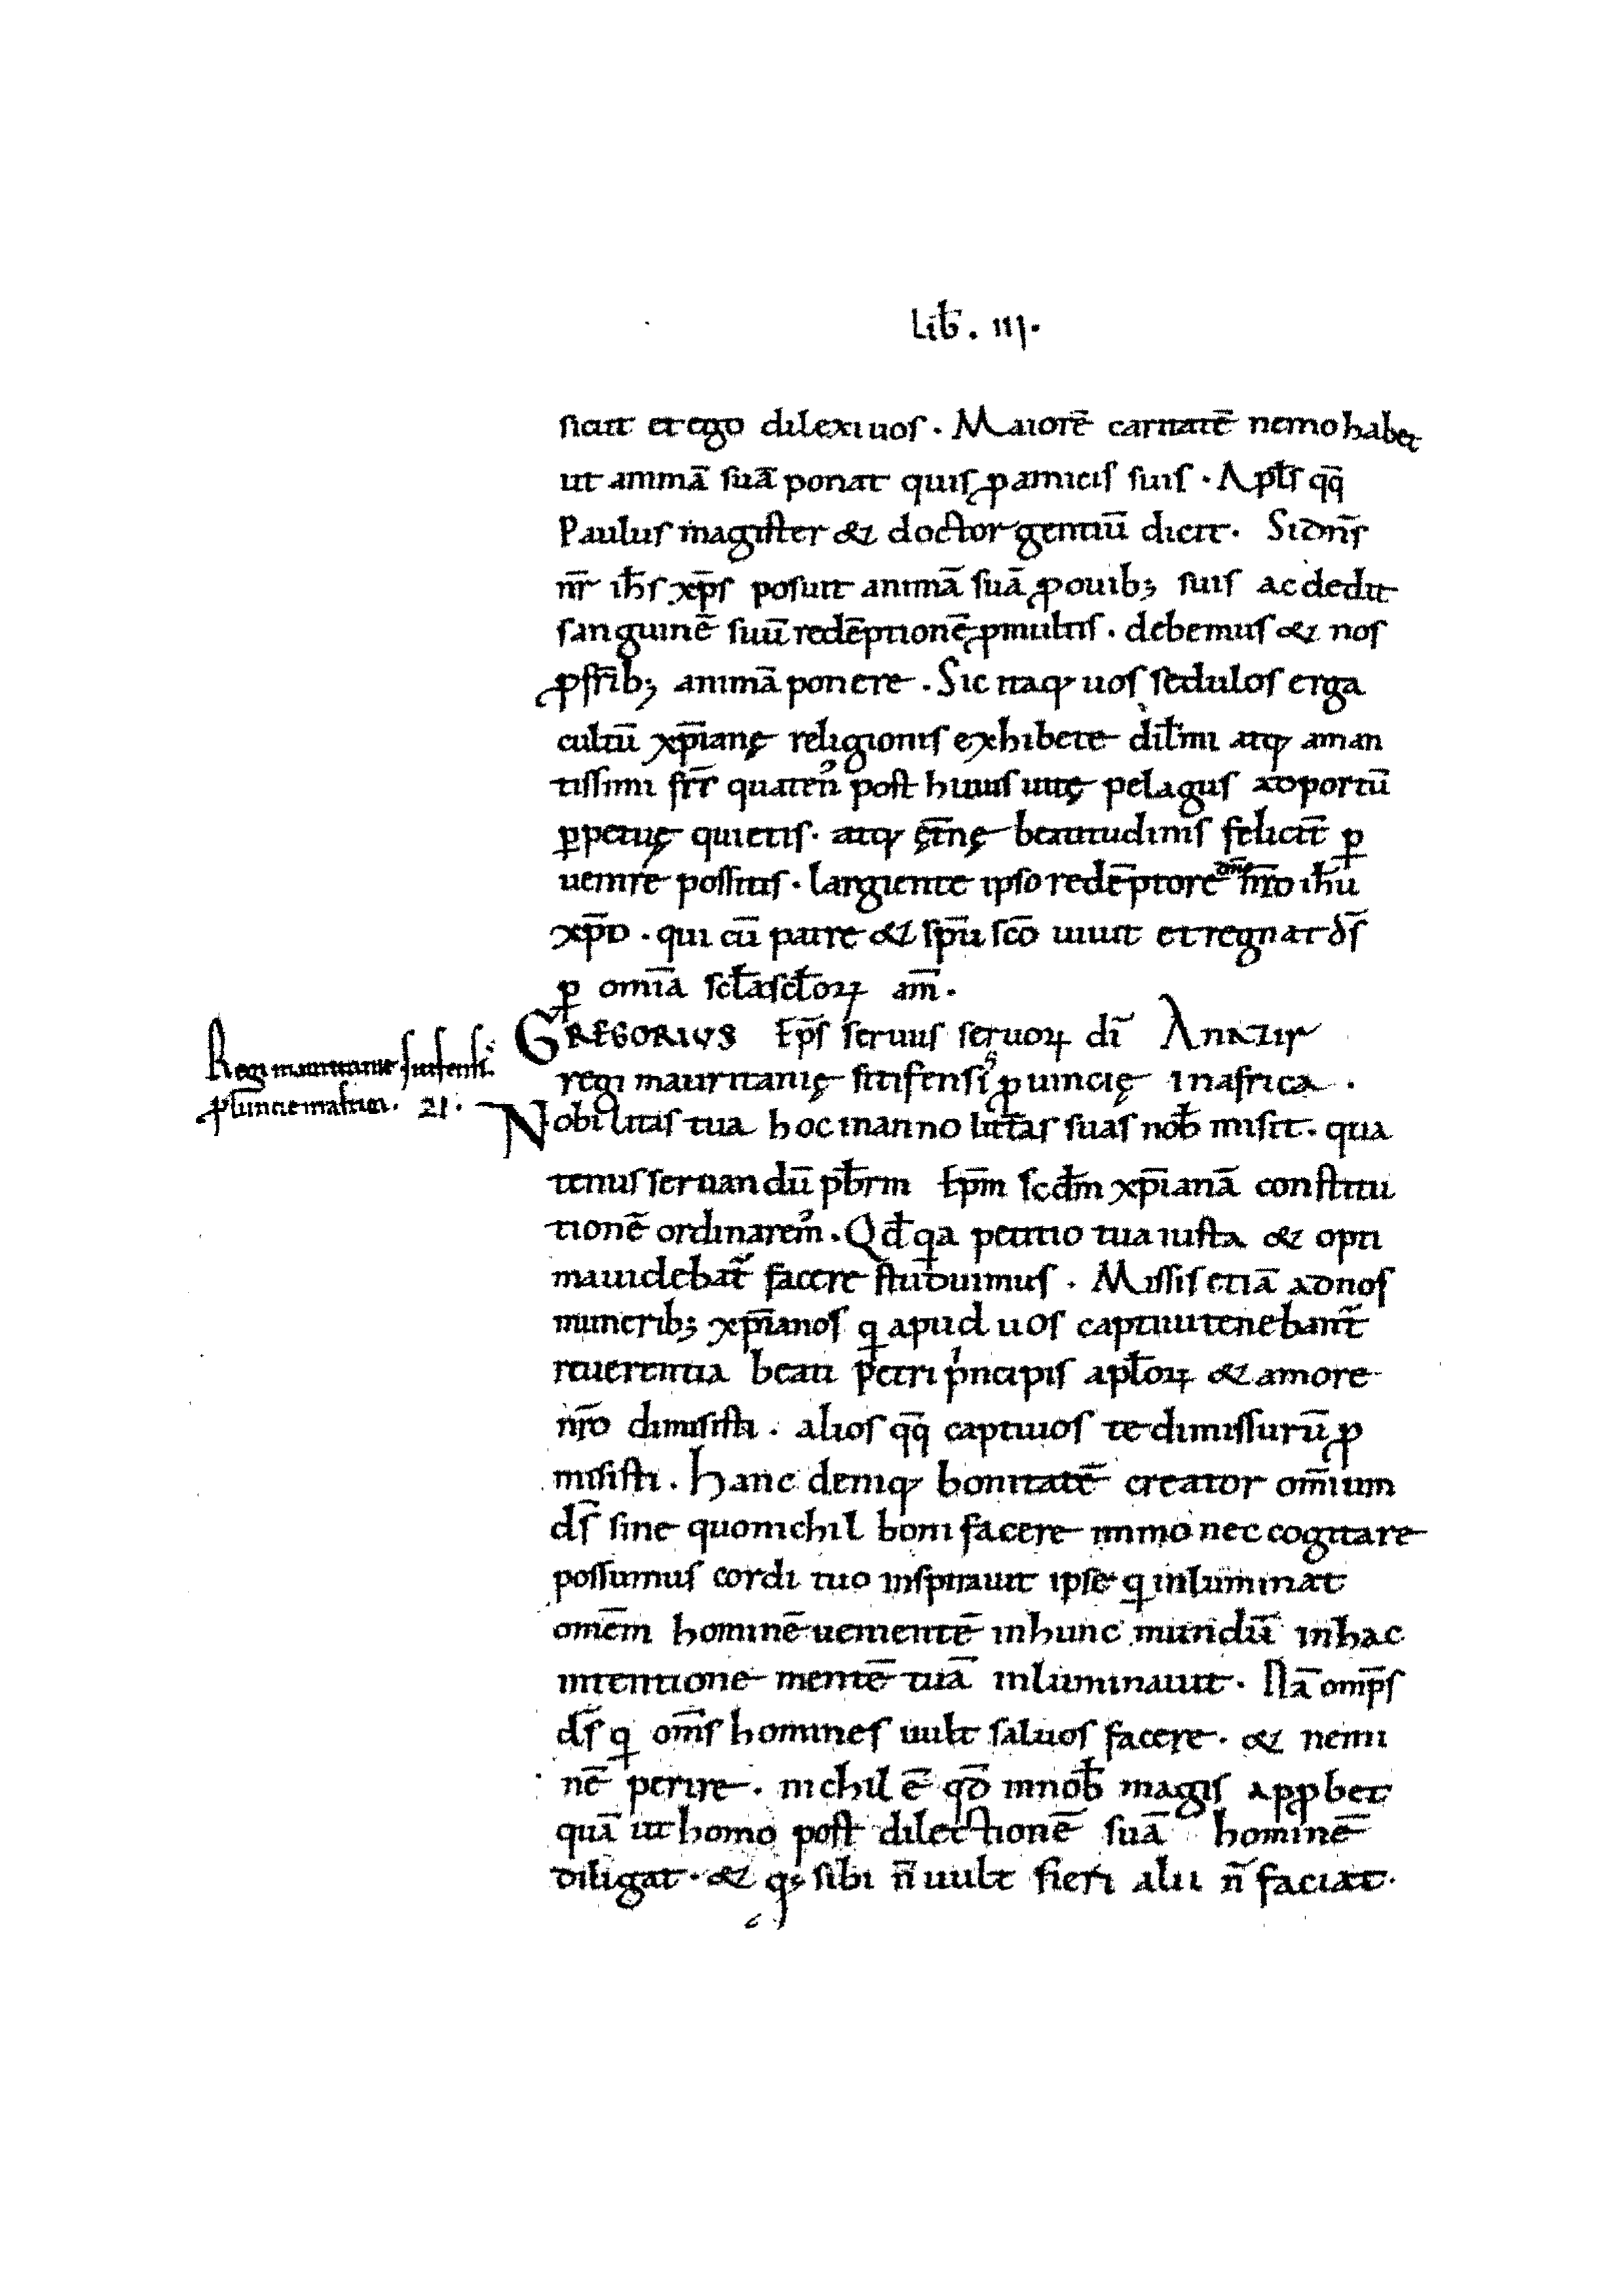 Lib̄. III.
sicut et ego dilexi uos. Maiorē caritatē nemo habet
ut animā suā ponat quis ꝓ amicis suis. Apl̄s qq̄
Paulus magister & doctor gentiū dicit. Si dn̄s
nr̄ ih̄s xp̄s posuit animā suā ꝓ ouib; suis ac dedit
sanguinē suū redēptionē ꝓ multis. debemus & nos
ꝓ fr̄ib; animā ponere. Sic itaq; uos sedulos erga
cultū xp̄ianę religionis exhibete dil̄mi atq; aman
tissimi fr̄r quaten᾽ post huius uitę pelagus ad portū
ꝑpetuę quietis. atq; ęt̄nę beatitudinis felicit̄ ꝑ
uenire possitis. largiente ipso redēptore om̄ nr̄o ih̄u
xp̄o. qui cū patre & sp̄u sc̄o uiuit et regnat ds̄
ꝑ omīa scl̄a scl̄oꝝ am̄.
GREGORIUS Ep̄s seruus seruoꝝ di̅ Anazir
regi mauritanię sitifensis ꝓuincię in africa.
Regi mauritanie sitifensis
ꝓuincie in africa. 21.
Nobilitas tua hoc in anno litt̄as suas nob̄ misit. qua
tenus seruandū pb̄rm Ep̄m scd̄m xp̄ianā constitu
tionē ordinarem᾽. Qd̄ qa petitio tua iusta & opti
ma uidebat̄ facere studuimus. Missis etiā ad nos
munerib; xp̄ianos q apud uos captiui tenebant̄
reuerentia beati petri pncipis apl̄oꝝ & amore
nr̄o dimisisti. alios qq̄ captiuos te dimissurū ꝓ
misisti. Hanc deniq; bonitatē creator om̄ium
ds̄ sine quo nichil boni facere immo nec cogitare
possumus cordi tuo inspirauit ipse q inluminat
om̄em hominē uenientē in hunc mundū in hac
intentione mentē tuā inluminauit. Nā omp̄s
ds̄ q om̄s homines uult saluos facere. & nemi
nē perire. nichil ē qd̄ in nob̄ magis apꝓbet
quā ut homo post dilectionē suā hominē
diligat. & q; sibi n̄ uult fieri alii n̄ faciat.